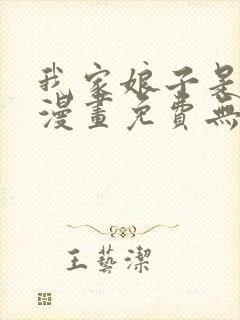 我家娘子是
漫畫免費無
王藝潔